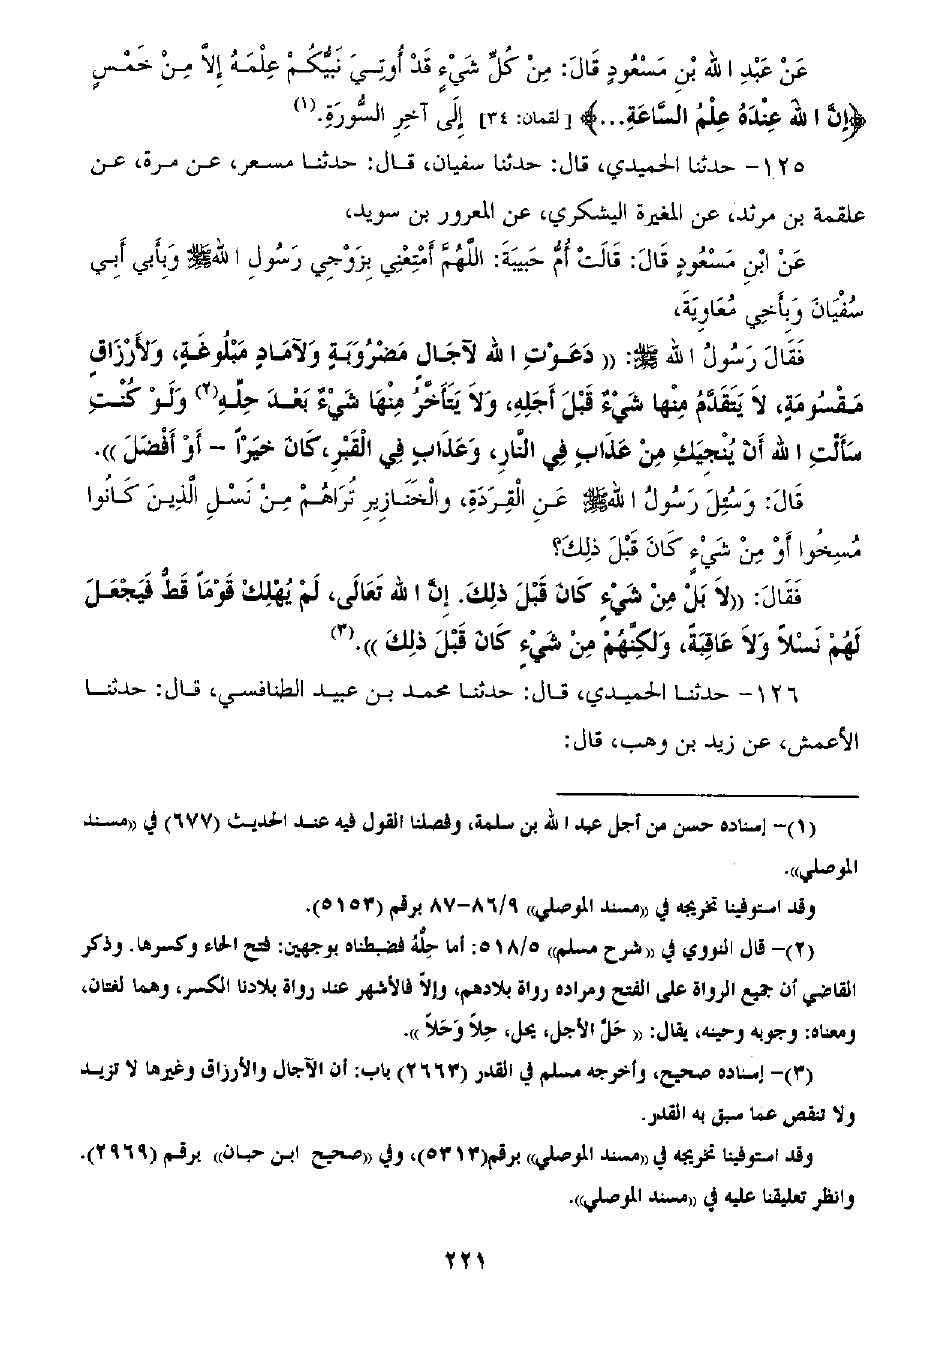 عَنْ عَبْدِ اللهِ بْنِ مَسْعُودٍ قَالَ: مِنْ كُلِّ شَيْءٍ قَدْ أُوتِيَ نَبِيُّكُمْ عِلْمَهُ إِلاَّ مِنْ خَمْسٍ
﴿إِنَّ اللهَ عِنْدَهُ عِلْمُ السَّاعَةِ...﴾ [لقمان: ٣٤] إِلَى آخِرِ السُّورَةِ.(١)
١٢٥- حدثنا الحميدي، قال: حدثنا سفيان، قال: حدثنا مسعر، عن مرة، عن
علقمة بن مرثد، عن المغيرة اليشكري، عن المعرور بن سويد،
عَنْ ابْنِ مَسْعُودٍ قَالَ: قَالَتْ أُمُّ حَبِيبَةَ: اللَّهُمَّ أَمْتِعْنِي بِزَوْجِي رَسُولِ اللهِ ﷺ وَبِأَبِي أَبِي
سُفْيَانَ وَبِأَخِي مُعَاوِيَةَ،
فَقَالَ رَسُولُ اللهِ ﷺ: (( دَعَوْتِ اللهَ لآجَالٍ مَضْرُوبَةٍ وَلآمَادٍ مَبْلُوغَةٍ، وَلأَرْزَاقٍ
مَقْسُومَةٍ، لاَ يَتَقَدَّمُ مِنْهَا شَيْءٌ قَبْلَ أَجَلِهِ، وَلاَ يَتَأَخَّرُ مِنْهَا شَيْءٌ بَعْدَ حِلِّهِ(٢) وَلَوْ كُنْتِ
سَأَلْتِ اللهَ أَنْ يُنْجِيَكِ مِنْ عَذَابٍ فِي النَّارِ، وَعَذَابٍ فِي الْقَبْرِ، كَانَ خَيْراً - أَوْ أَفْضَلَ )).
قَالَ: وَسُئِلَ رَسُولُ اللهِ ﷺ عَنِ الْقِرَدَةِ، وَالْخَنَازِيرِ تُرَاهُمْ مِنْ نَسْلِ الَّذِينَ كَانُوا
مُسِخُوا أَوْ مِنْ شَيْءٍ كَانَ قَبْلَ ذلِكَ؟
فَقَالَ: ((لاَ بَلْ مِنْ شَيْءٍ كَانَ قَبْلَ ذلِكَ. إِنَّ اللهَ تَعَالَى، لَمْ يُهْلِكْ قَوْماً قَطُّ فَيَجْعَلَ
لَهُمْ نَسْلاً وَلاَ عَاقِبَةً، وَلكِنَّهُمْ مِنْ شَيْءٍ كَانَ قَبْلَ ذلِكَ )).(٣)
١٢٦- حدثنا الحميدي، قال: حدثنا محمد بن عبيد الطنافسي، قال: حدثنا
الأعمش، عن زيد بن وهب، قال:
(١)- إسناده حسن من أجل عبد الله بن سلمة، وفصلنا القول فيه عند الحديث (٦٧٧) في ((مسند
الموصلي)).
وقد استوفينا تخريجه في ((مسند الموصلي)) ٨٦/٩-٨٧ برقم (٥١٥٣).
(٢)- قال النووي في ((شرح مسلم)) ٥١٨/٥: أما حِلُّهُ فضبطناه بوجهين: فتح الحاء وكسرها. وذكر
القاضي أن جميع الرواة على الفتح ومراده رواة بلادهم، وإلاّ فالأشهر عند رواة بلادنا الكسر، وهما لغتان،
ومعناه: وجوبه وحينه، يقال: (( حَلَّ الأجل، يحل، حِلاًّ وَحَلاًّ )).
(٣)- إسناده صحيح، وأخرجه مسلم في القدر (٢٦٦٣) باب: أن الآجال والأرزاق وغيرها لا تزيد
ولا تنقص عما سبق به القدر.
وقد استوفينا تخريجه في ((مسند الموصلي)) برقم(٥٣١٣)، وفي ((صحيح ابن حبان)) برقم (٢٩٦٩).
وانظر تعليقنا عليه في ((مسند الموصلي)).
٢٢١